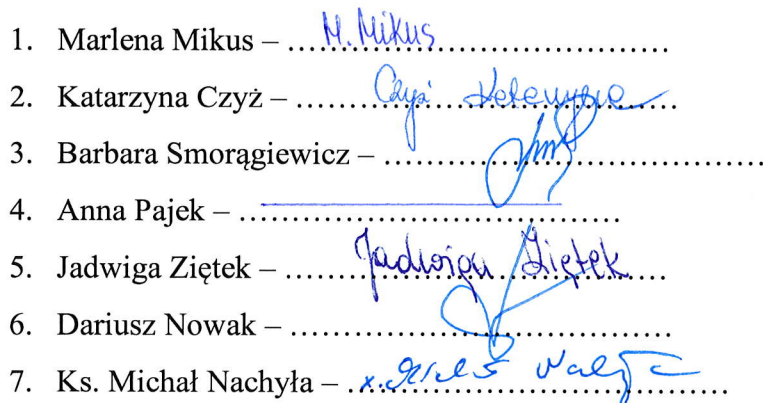 1. Marlena Mikus – ....M. Mikus..............................
2. Katarzyna Czyż – .........Czyż Katarzyna....
3. Barbara Smorągiewicz – ..........................................
4. Anna Pajek – ..........................................
5. Jadwiga Ziętek – .........Jadwiga Ziętek.....
6. Dariusz Nowak – ..........................................
7. Ks. Michał Nachyła – ...x. Michał Nachyła........